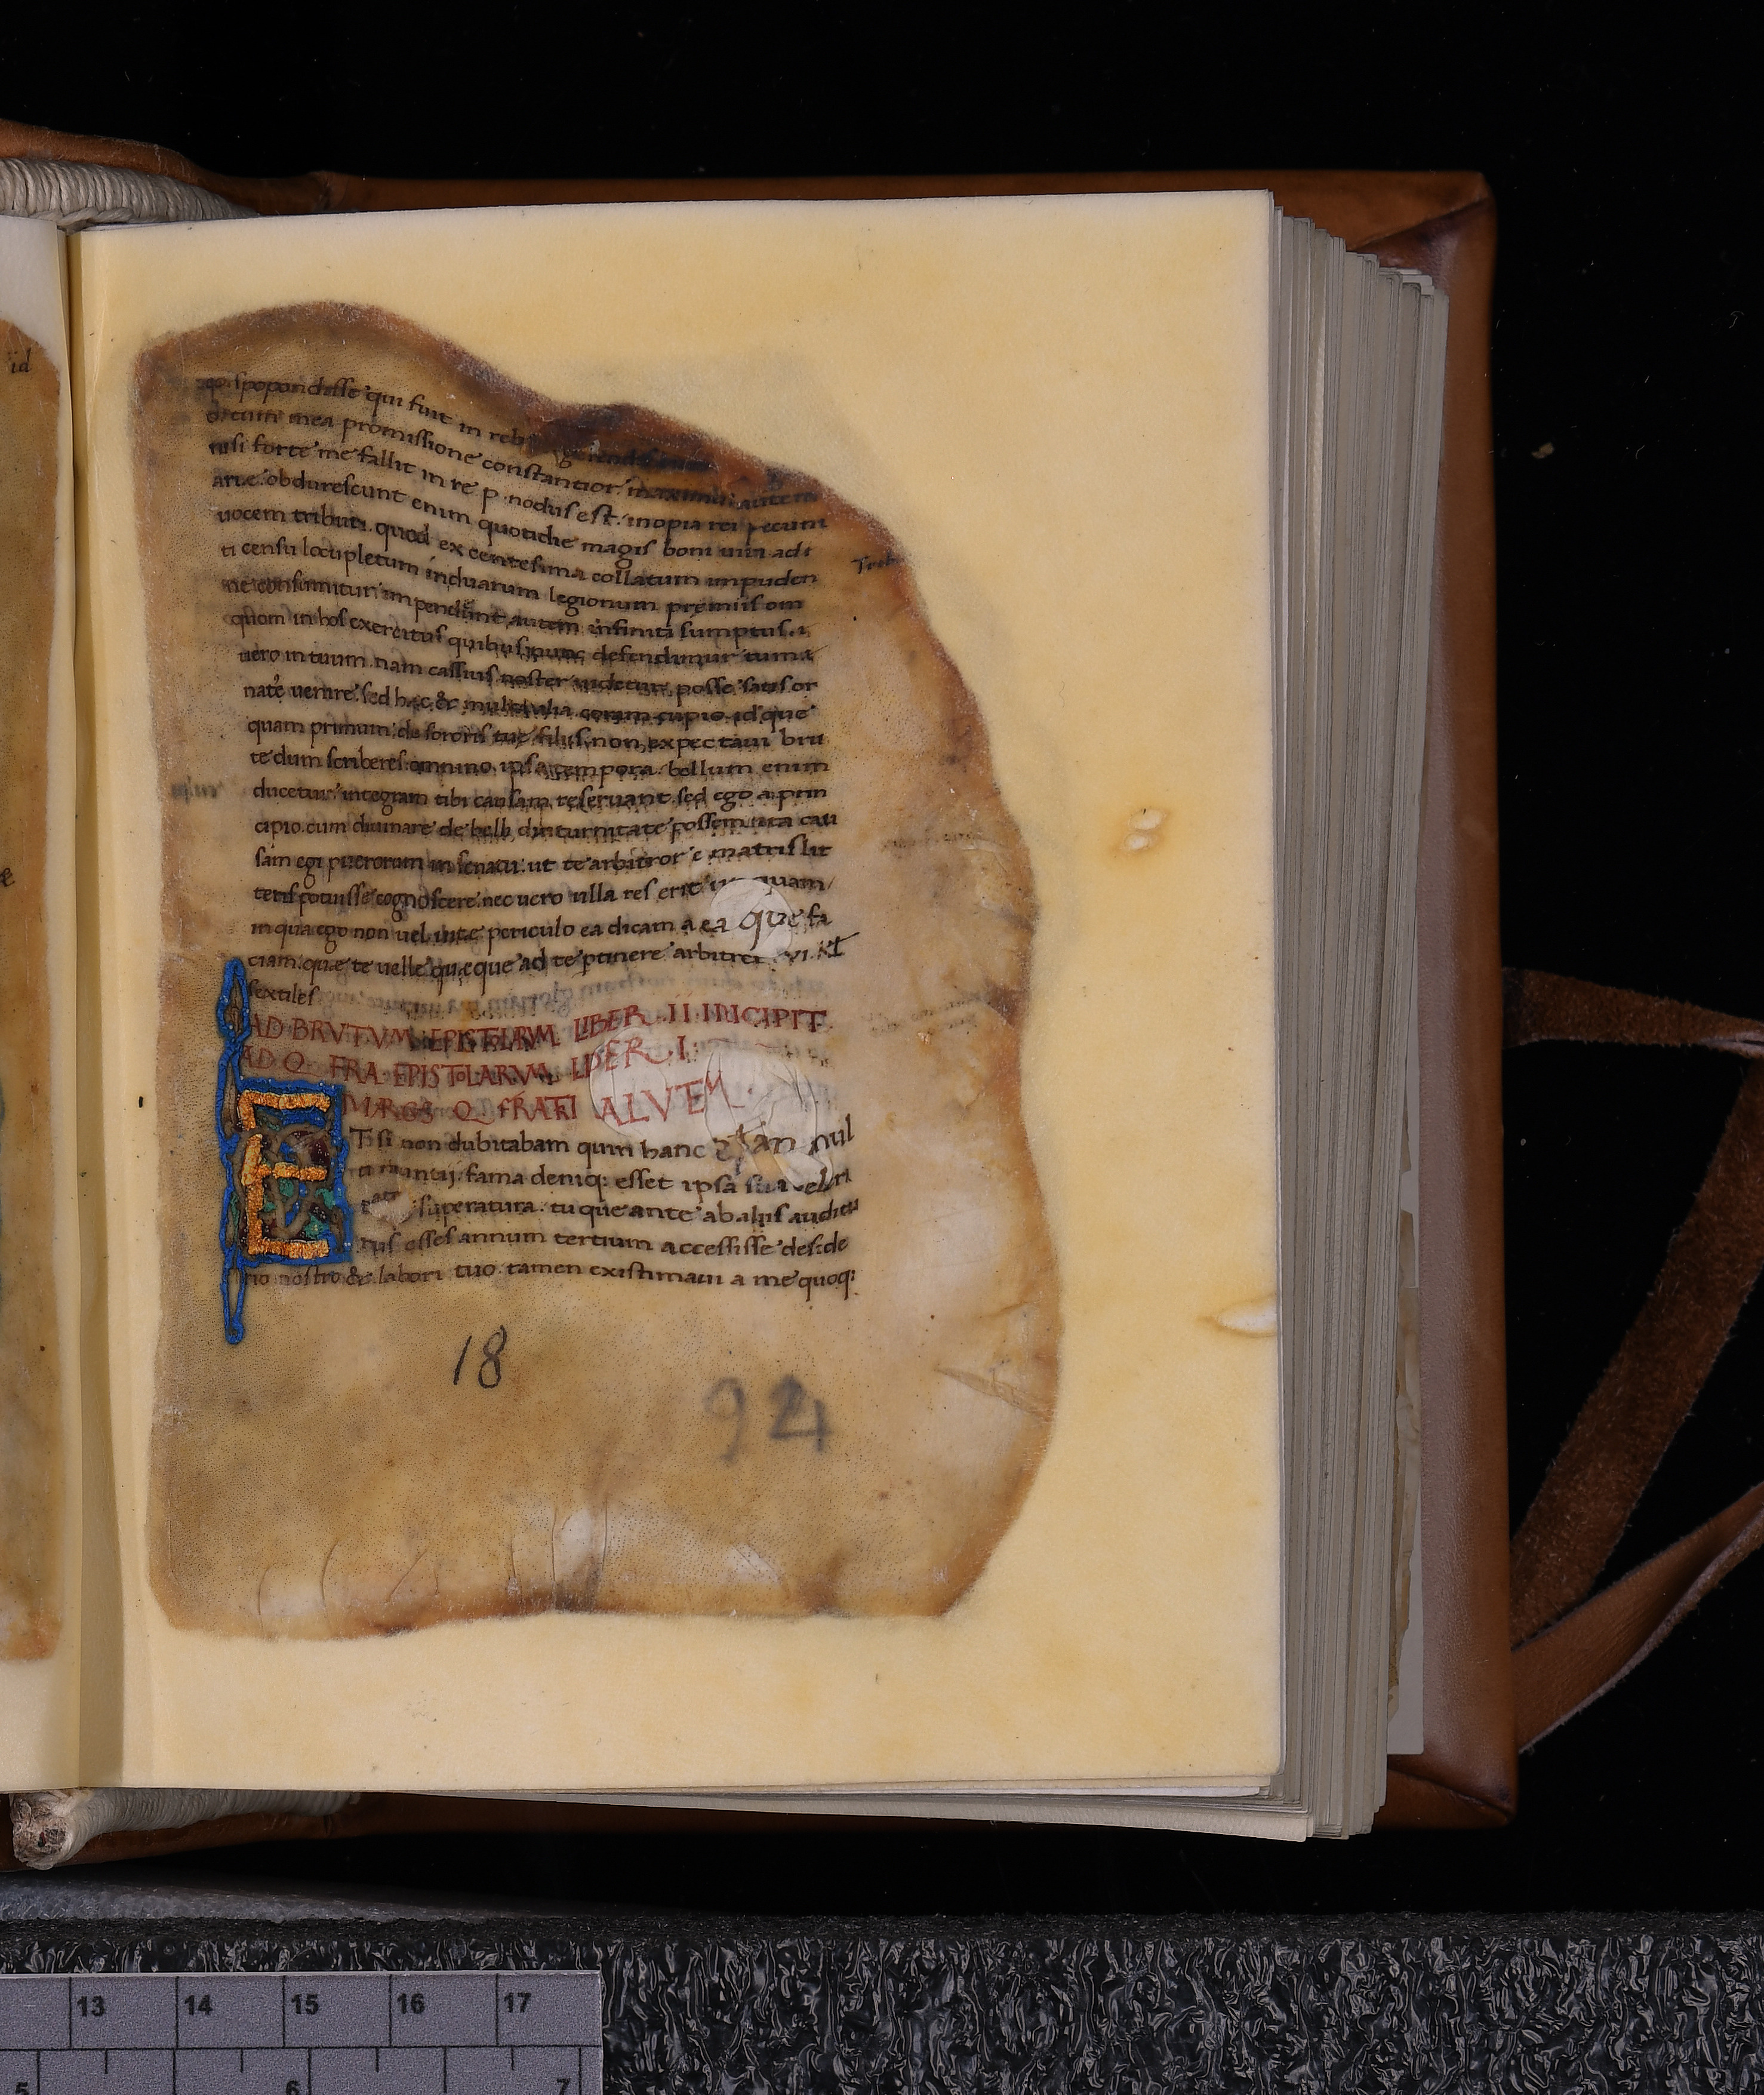 id
spopondisse qui fuit in reb
mea promissione constantior maximus autem
nisi forte me fallit in re p. nodus est inopia rei pecuni
arie obdurescunt enim quotidie magis boni uiri ad
uocem tributi quod ex centesima collatum impuden
ti censu locupletum induarum legionum premiis om
ne consumitur impendunt autem infiniti sumptus
quom in hos exercitus quibus nunc defendimur tum a
uero in tuum nam cassius noster uidetur posse satis or
nate uenire sed hec & multa alia coram cupio id que
quam primum de sororis tue filiis non expectaui bru
te dum scriberes omnino ipsa tempora bellum enim
ducetur integram tibi causam reseruant sed ego a prin
cipio cum diuinare de belli diuturnitate possem ita cau
sam egi puerorum in senatu ut te arbitror e matris lit
teris potuisse cognoscere nec uero ulla res erit quam
in qua ego non uel uite periculo ea dicam a ea que fa
ciam que te uelle que que ad te ptinere arbitrer VI. Kl
sextiles
AD BRVTVM EPISTOLARVM LIBER II INCIPIT
AD Q FRA EPISTOLARVM LIBER I
MARCVS Q FRATI SALVTEM
ETsi non dubitabam quin hanc nul
ti nuntij fama deniq; esset ipsa sua celeri
tate superatura tu que ante ab alijs auditu
rus esses annum tertium accessisse deside
rio nostro & labori tuo tamen existimaui a me quoq;
18
924
13 14 15 16 17
5 6 7